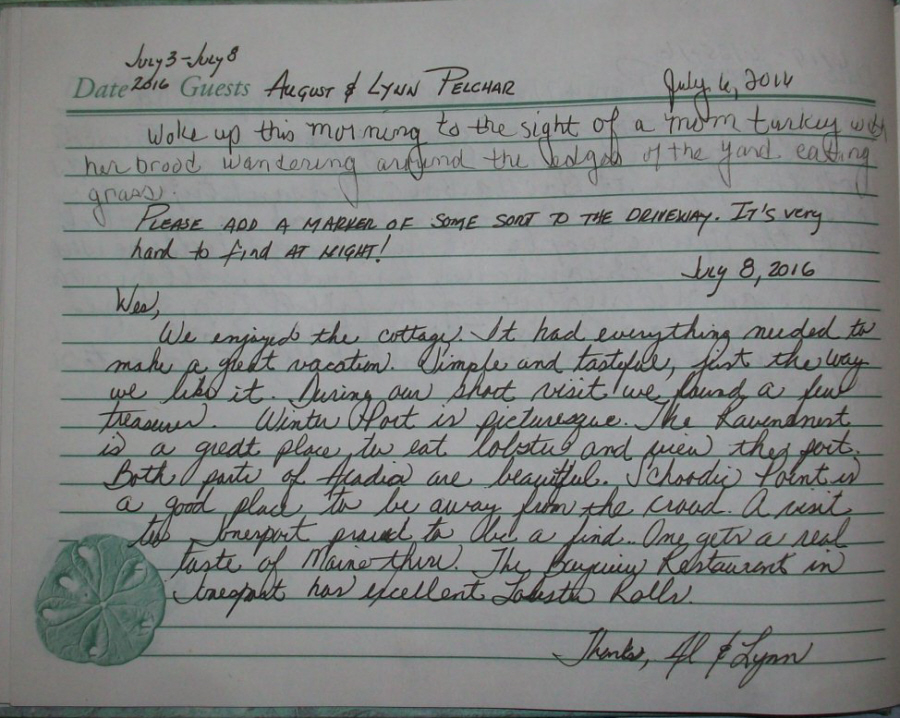 July 3 - July 8
Date 2016 Guests August & Lynn Pelchar July 6, 2016
Woke up this morning to the sight of a mom turkey with
her brood wandering around the edges of the yard eating
grass.
PLEASE ADD A MARKER OF SOME SORT TO THE DRIVEWAY. It's very
hard to find AT NIGHT!
July 8, 2016
Wes,
We enjoyed the cottage. It had everything needed to
make a great vacation. Simple and tasteful, just the way
we like it. During our short visit we found a few
treasures. Winter Port is picturesque. The
is a great place to eat lobster and view the port.
Both parts of Acadia are beautiful. Schoodic Point is
a good place to be away from the crowd. A visit
to Jonesport proved to be a find. One gets a real
taste of Maine there. The Restaurant in
Jonesport has excellent Lobster Rolls.
Thanks, Al & Lynn